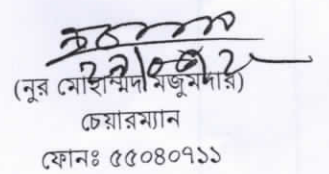 (নূর মোহাম্মদ মজুমদার)
চেয়ারম্যান
ফোনঃ ৫৫০৪০৭১১